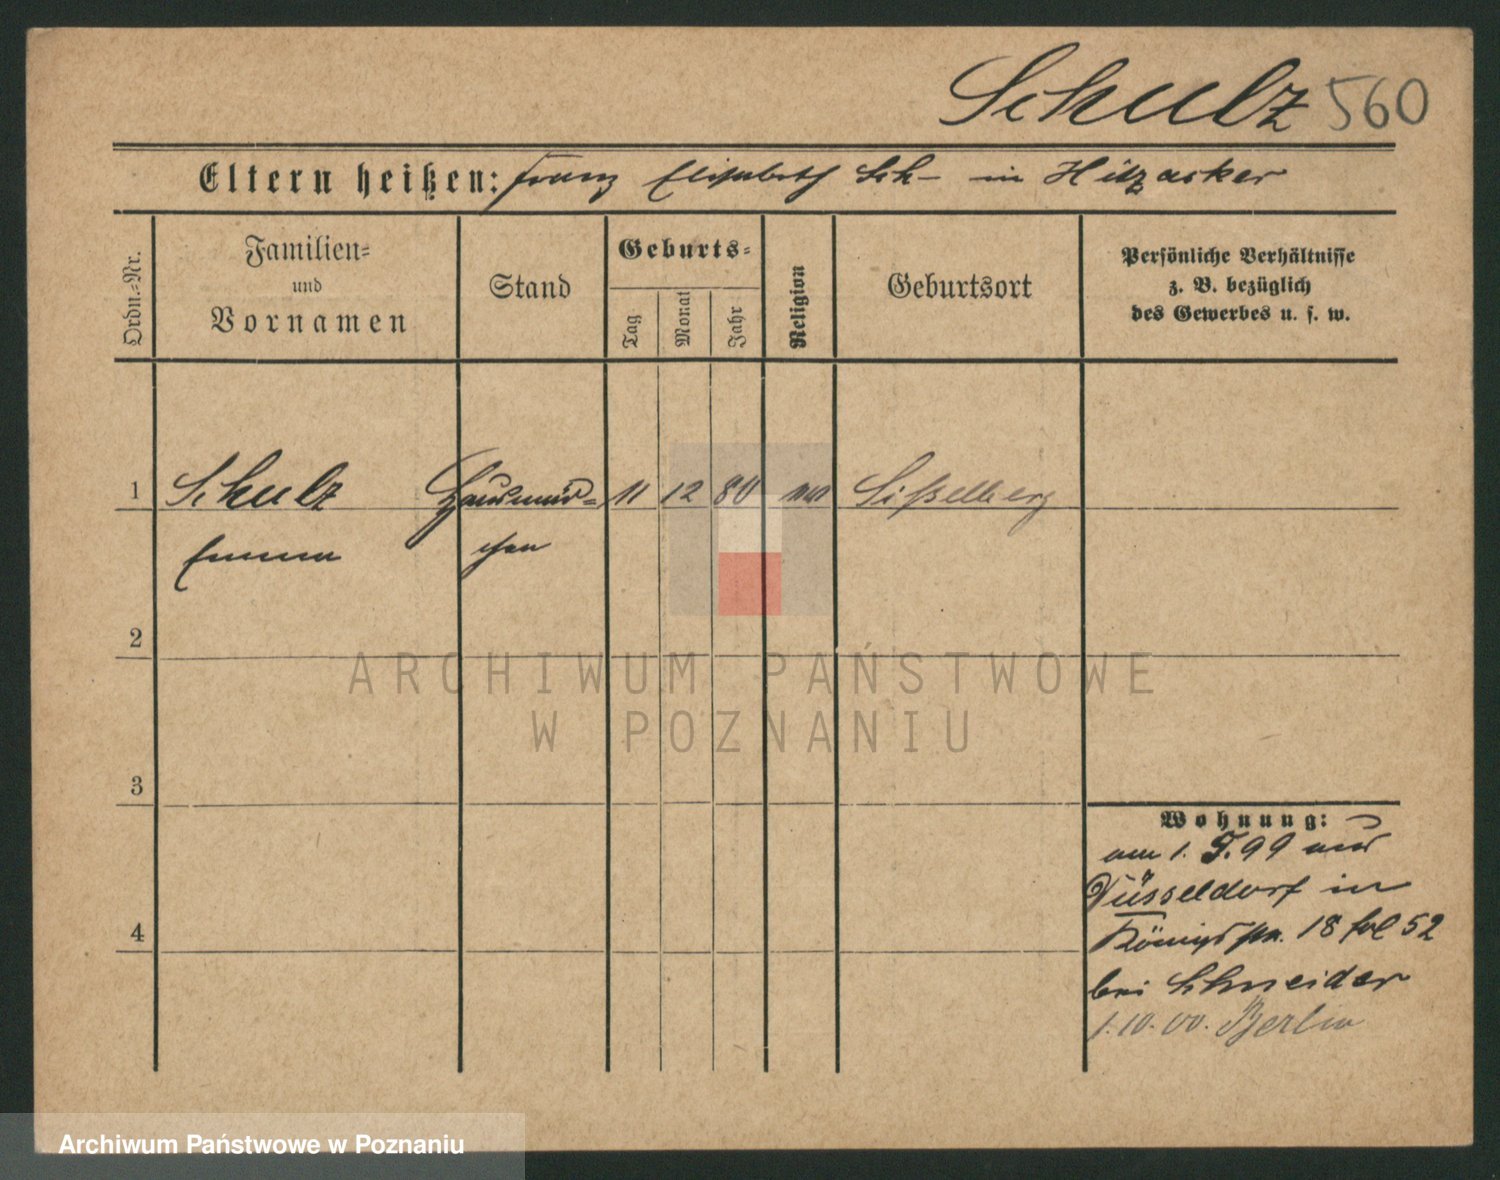 Schulz 560
Eltern heißen: Franz Elisabeth Sch- in Hitzacker
Ordn.=Nr.
Familien=
und
Vornamen
Stand
Geburts=
Tag
Monat
Jahr
Religion
Geburtsort
Persönliche Verhältnisse
z. B. bezüglich
des Gewerbes u. s. w.
1 Schulz Hausmäd= 11 12 80 Sißelberg
Emma chen
2
3
4
Wohnung:
am 1. 99 aus
Düsseldorf in
Königstr. 18 fol 52
bei Schneider
1.10.00. Berlin
ARCHIWUM PAŃSTWOWE
W POZNANIU
Archiwum Państwowe w Poznaniu